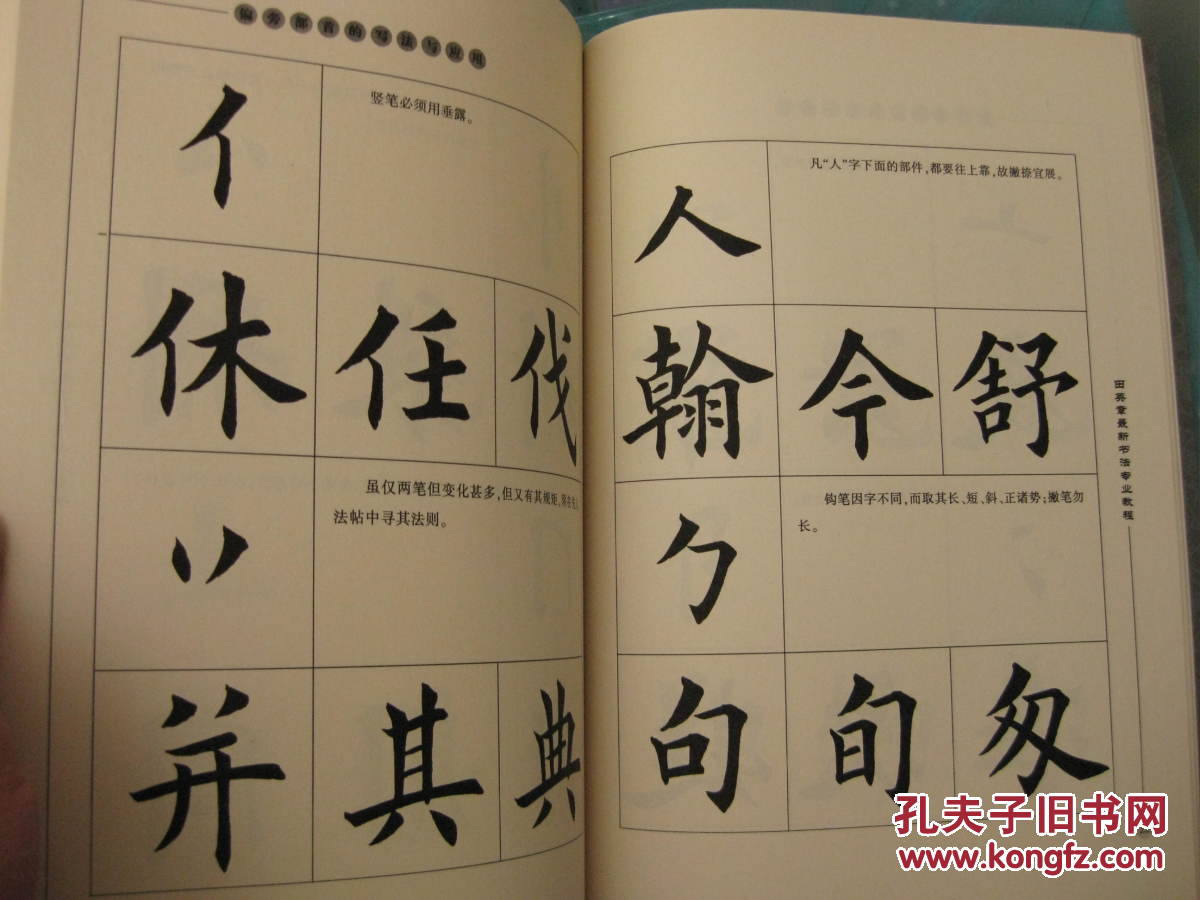 偏旁部首的写法与应用
亻
竖笔必须用垂露。
休 任 伐
丷
虽仅两笔但变化甚多,但又有其规矩,
法帖中寻其法则。
并 其 典
人
凡“人”字下面的部件,都要往上靠,故撇捺宜展。
翰 今 舒
勹
钩笔因字不同,而取其长、短、斜、正诸势;撇笔勿
长。
句 旬 匆
田英章最新书法专业教程
孔夫子旧书网
www.kongfz.com